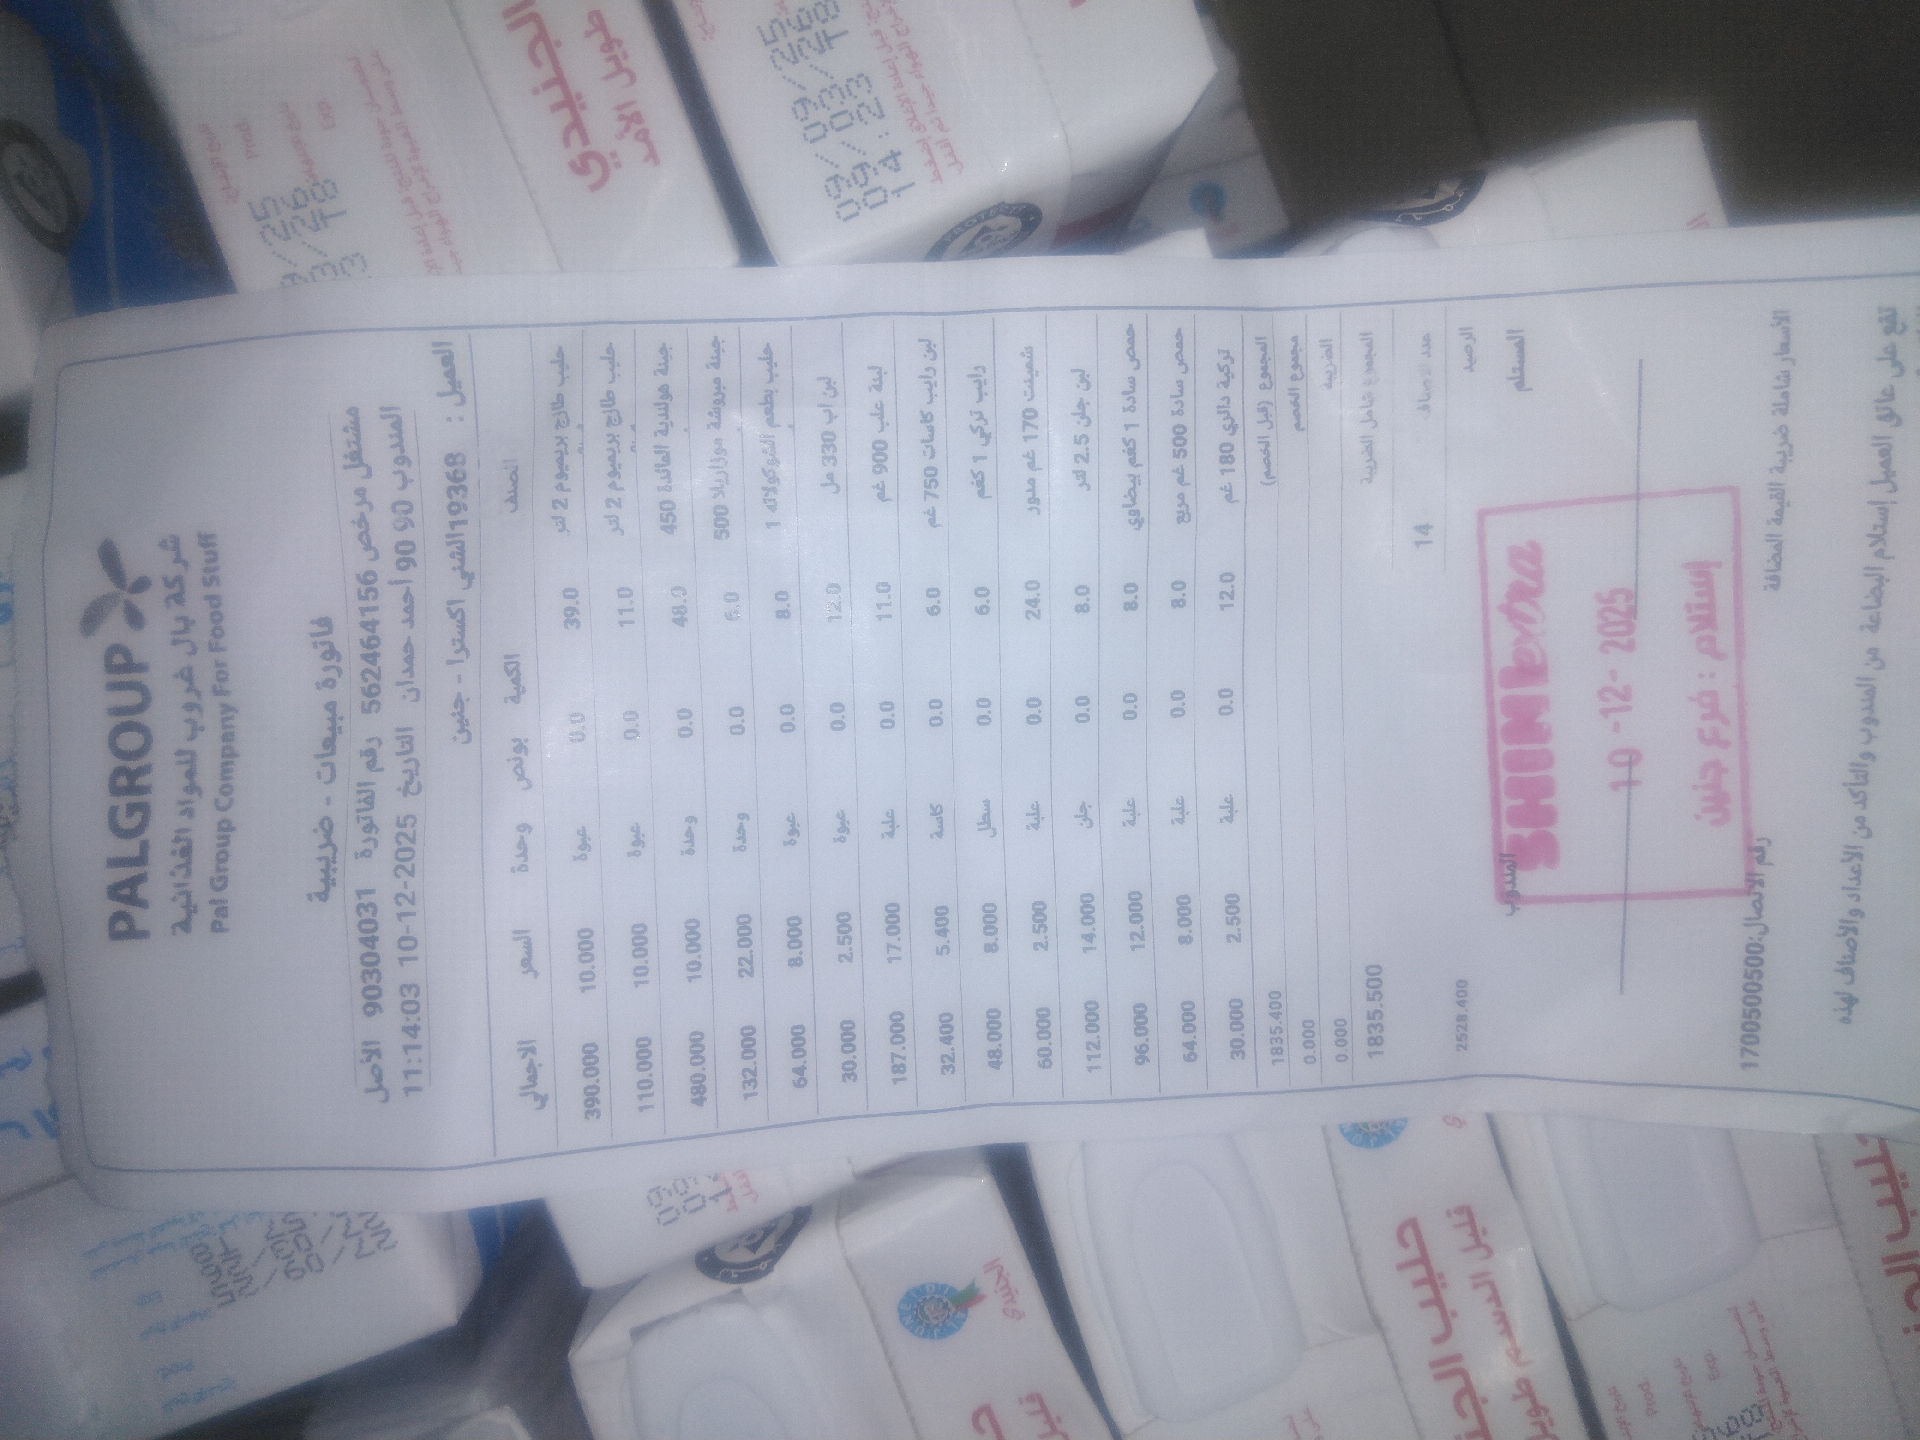 PALGROUP
شركة بال غروب للمواد الغذائية
Pal Group Company For Food Stuff
فاتورة مبيعات - ضريبية
مشتغل مرخص 562464156 رقم الفاتورة 90304031 الأصل
المندوب 90 90 احمد حمدان التاريخ 2025-12-10 11:14:03
العميل : 19368 الشني اكسترا - جنين
الصنف الكمية بونص وحدة السعر الاجمالي
حليب طازج بريميوم 2 لتر 39.0 0.0 عبوة 10.000 390.000
حليب طازج بريميوم 2 لتر 11.0 0.0 عبوة 10.000 110.000
جبنة هولندية المائدة 450 48.0 0.0 وحدة 10.000 480.000
جبنة مبروشة موزاريلا 500 6.0 0.0 وحدة 22.000 132.000
حليب بطعم الشوكولاته 1 8.0 0.0 عبوة 8.000 64.000
لبن اب 330 مل 12.0 0.0 عبوة 2.500 30.000
لبنة علب 900 غم 11.0 0.0 علبة 17.000 187.000
لبن رايب كاسات 750 غم 6.0 0.0 كاسة 5.400 32.400
رايب تركي 1 كغم 6.0 0.0 سطل 8.000 48.000
شمينت 170 غم مدور 24.0 0.0 علبة 2.500 60.000
لبن جلن 2.5 لتر 8.0 0.0 جلن 14.000 112.000
حمص سادة 1 كغم بيضاوي 8.0 0.0 علبة 12.000 96.000
حمص سادة 500 غم مربع 8.0 0.0 علبة 8.000 64.000
تركية دائري 180 غم 12.0 0.0 علبة 2.500 30.000
المجموع (قبل الخصم) 1835.400
مجموع الخصم 0.000
الضريبة 0.000
المجموع شامل الضريبة 1835.500
عدد الاصناف 14
الرصيد 2528.400
المستلم المندوب
SHINI extra
10 -12- 2025
إستلام : فرع جنين
الأسعار شاملة ضريبة القيمة المضافة رقم الاتصال:1700500500
تقع على عاتق العميل إستلام البضاعة من المندوب والتأكد من الأعداد والأصناف لهذه
الجنيدي
طويل الأمد
09/09/25
09/03/26
14:23 T8
حليب الجنيدي
الجنيدي
قليل الدسم طويل